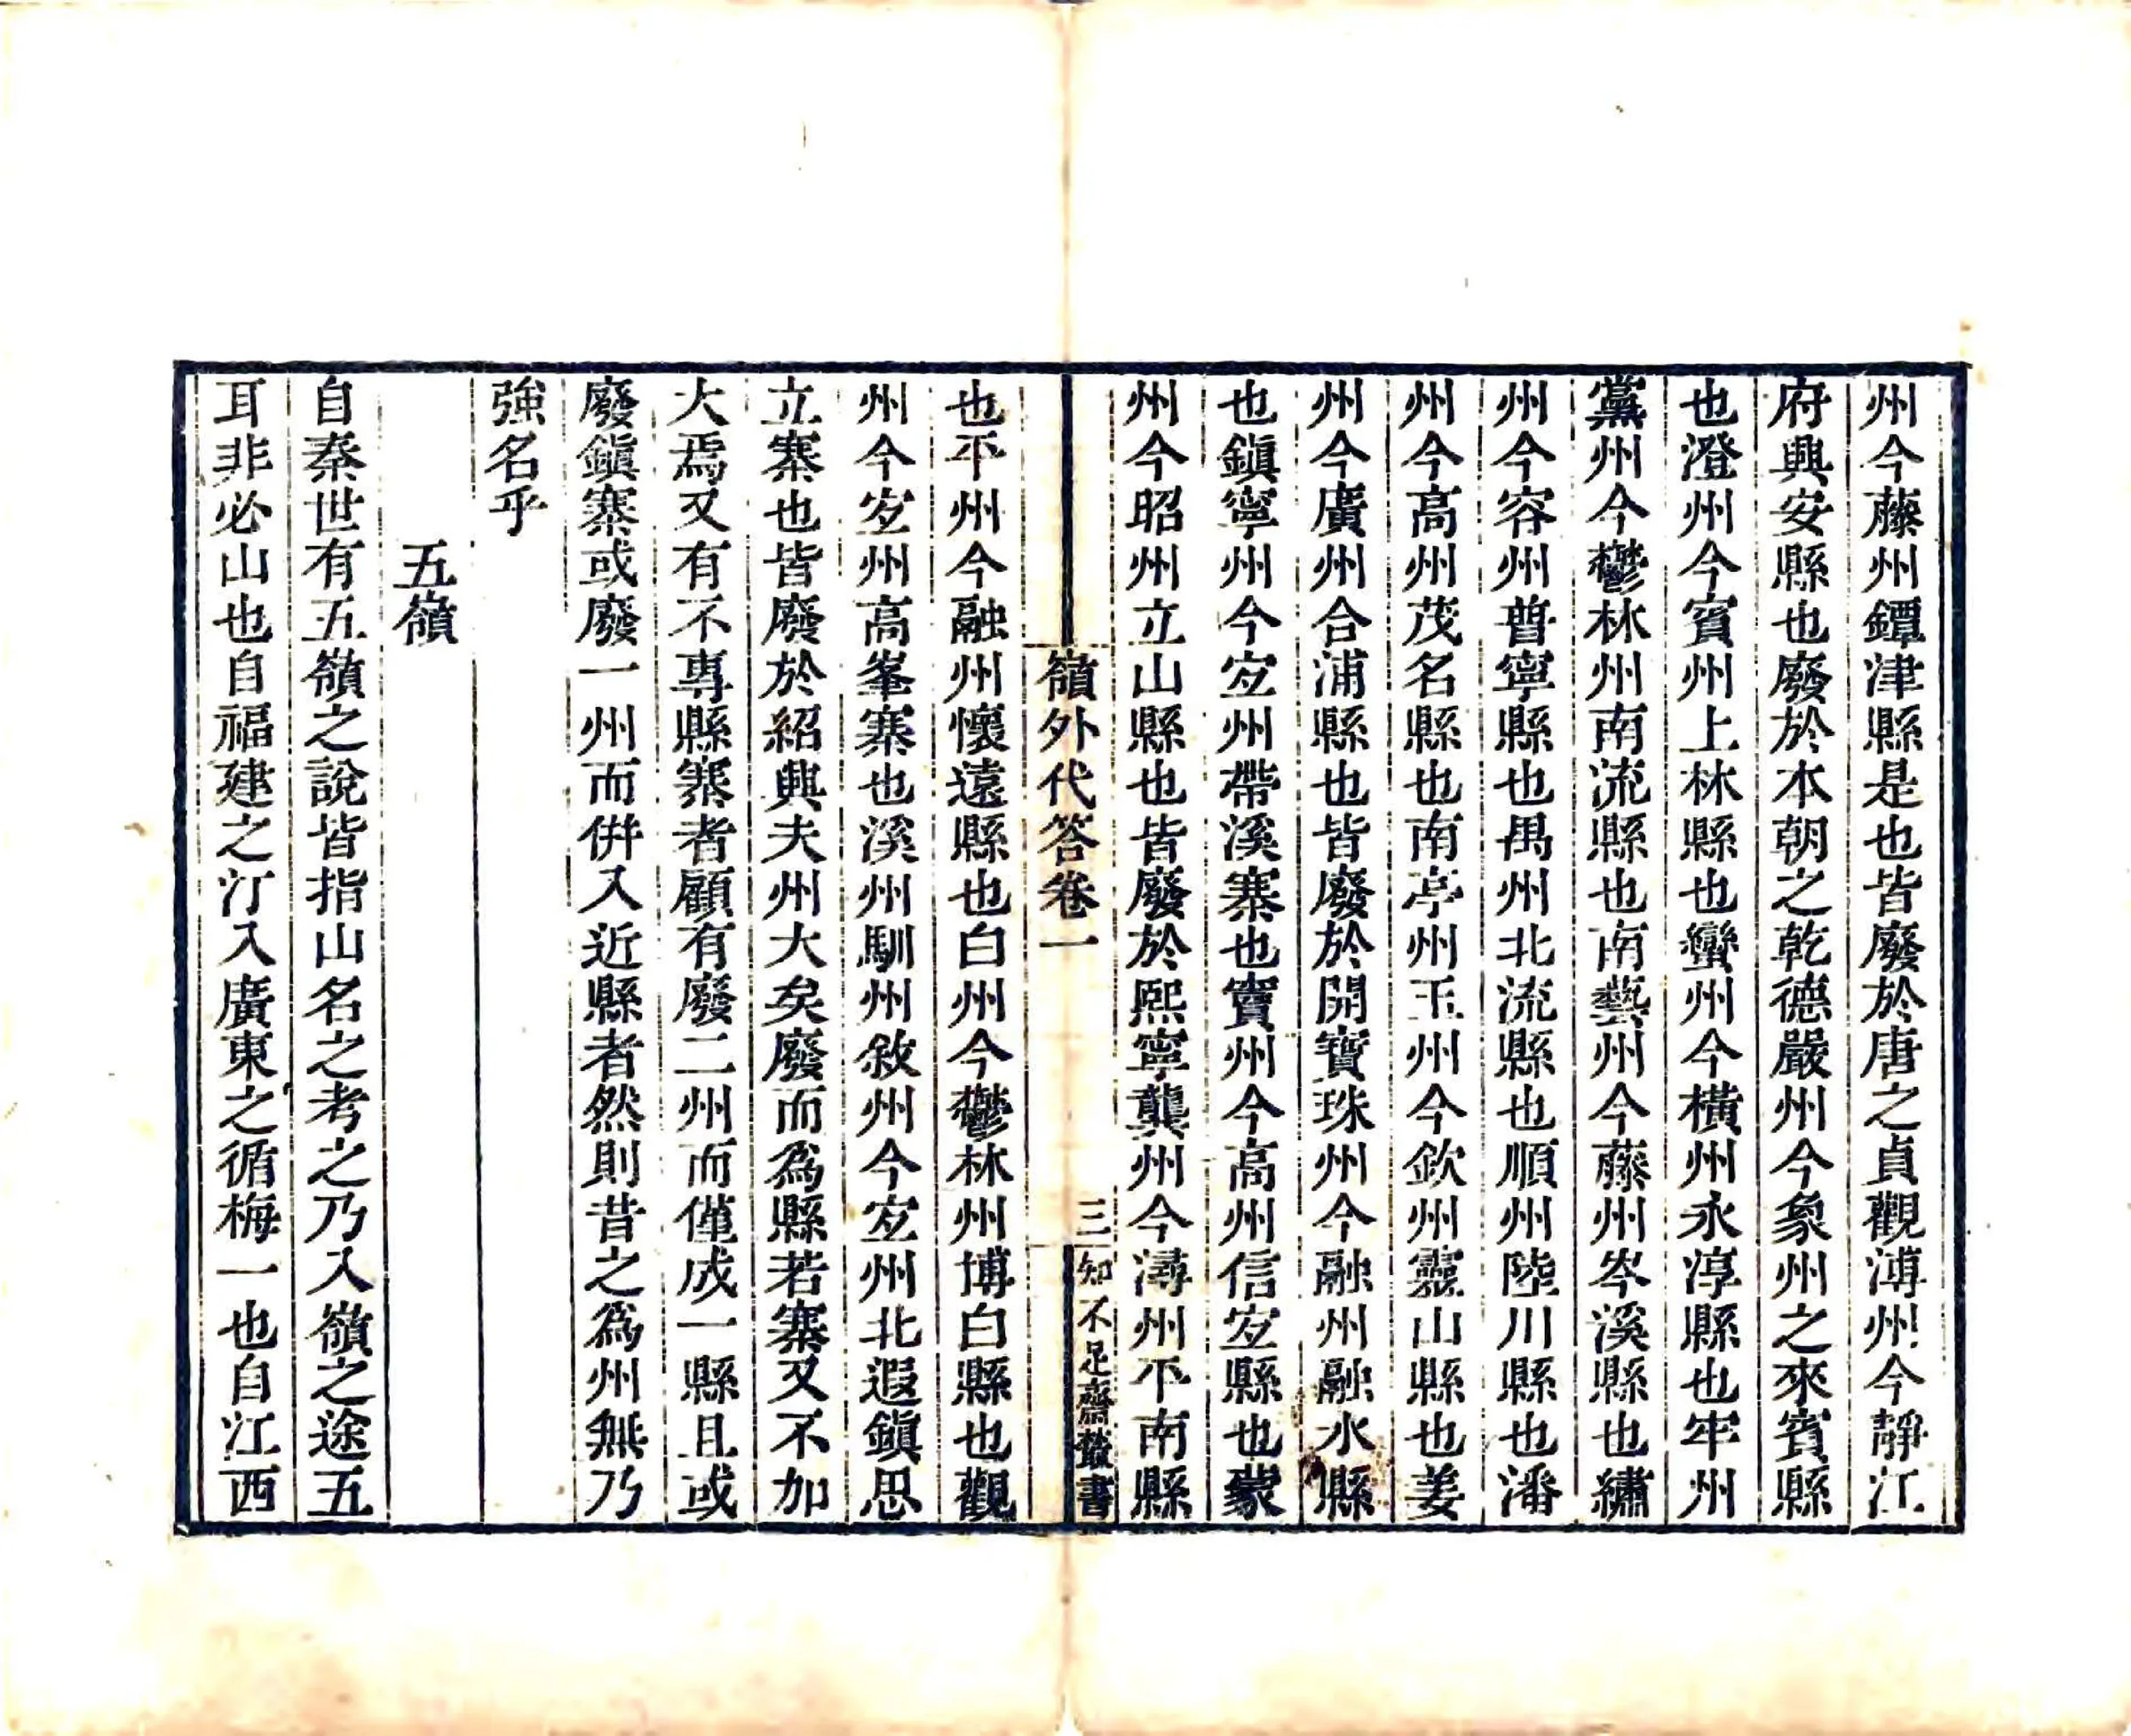 州今藤州鐔津縣是也皆廢於唐之貞觀溥州今靜江
府興安縣也廢於本朝之乾德嚴州今象州之來賓縣
也澄州今賓州上林縣也蠻州今橫州永淳縣也牢州
黨州今鬱林州南流縣也南藝州今藤州岑溪縣也繡
州今容州普寧縣也禺州北流縣也順州陸川縣也潘
州今高州茂名縣也南亭州玉州今欽州靈山縣也姜
州今廣州合浦縣也皆廢於開寶珠州今融州融水縣
也鎭寧州今宐州帶溪寨也竇州今高州信宐縣也蒙
州今昭州立山縣也皆廢於熙寧龔州今潯州平南縣
嶺外代答卷一 三 知不足齋叢書
也平州今融州懷遠縣也白州今鬱林州博白縣也觀
州今宐州高峯寨也溪州馴州敘州今宐州北遐鎭思
立寨也皆廢於紹興夫州大矣廢而爲縣若寨又不加
大焉又有不專縣寨者顧有廢二州而僅成一縣且或
廢鎭寨或廢一州而併入近縣者然則昔之爲州無乃
強名乎
五嶺
自秦世有五嶺之說皆指山名之考之乃入嶺之途五
耳非必山也自福建之汀入廣東之循梅一也自江西